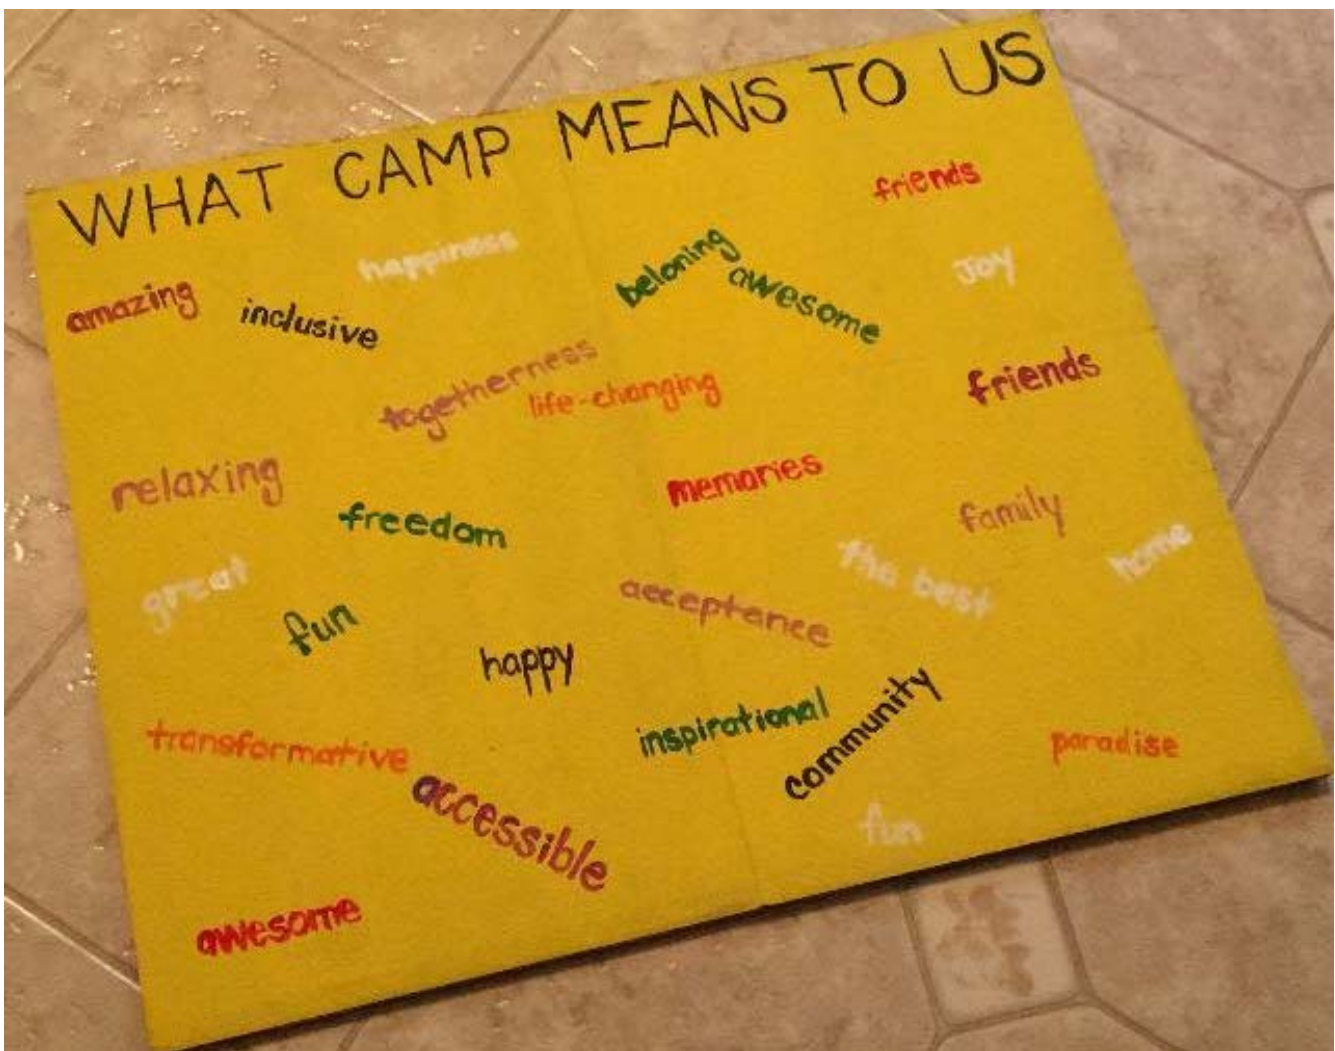 WHAT CAMP MEANS TO US
friends
happiness
beloning
awesome
Joy
amazing
inclusive
togetherness
life-changing
friends
relaxing
memories
freedom
family
great
the best
home
fun
acceptance
happy
inspirational
community
transformative
paradise
accessible
fun
awesome